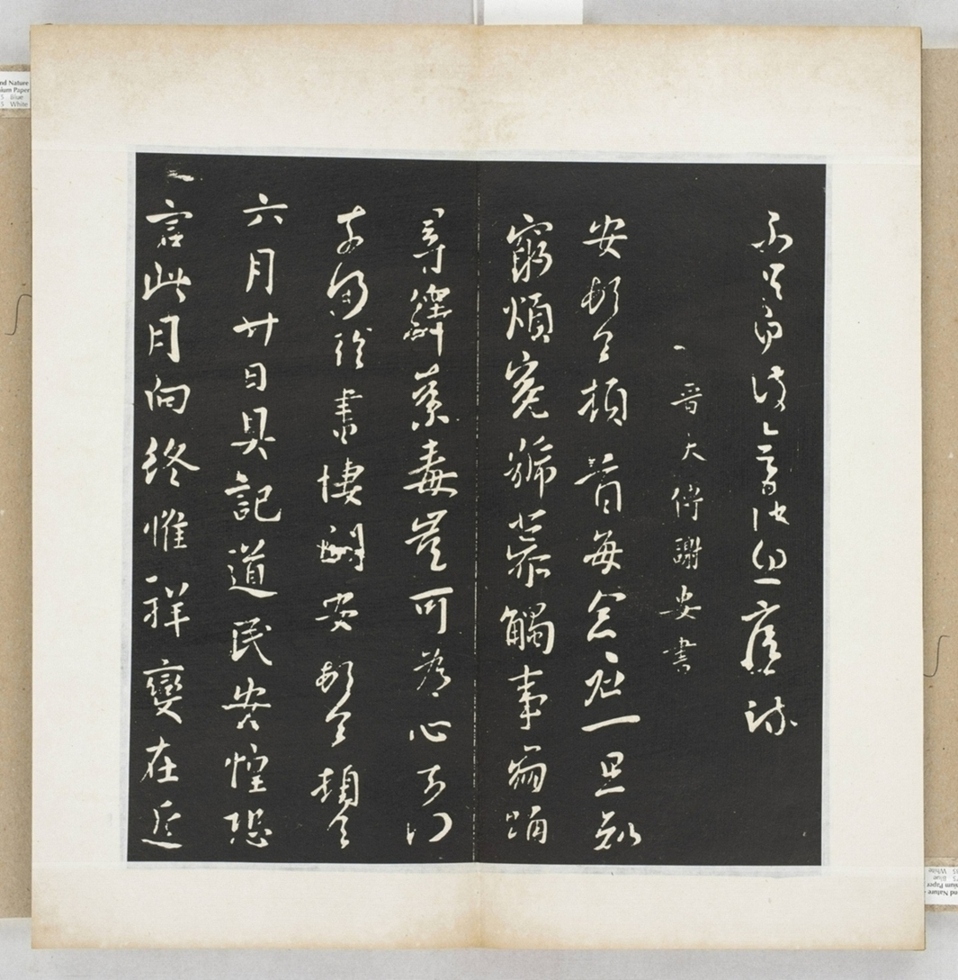 晉大傅謝安書
安頓首頓首每念君一旦知
窮煩冤號慕觸事崩踊
尋繹荼毒豈可為心奈何
奈何臨書悽悶安頓首頓首
六月廿日具記道民安惶恐
言此月向終惟祥變在近
nd Nature
nium Paper
Blue
White